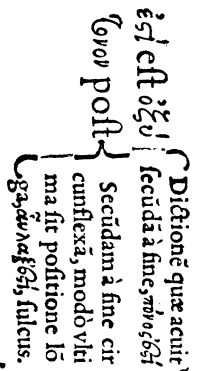 ἐςὶ est ὀξύ
τονον post
Dictionē quæ acuit
secūdā à fine, πόνος ἐςί
Secūdam à fine cir
cunflexā, modò vlti
ma sit positione lō
ga, αὖλαξ ἐςί, sulcus.